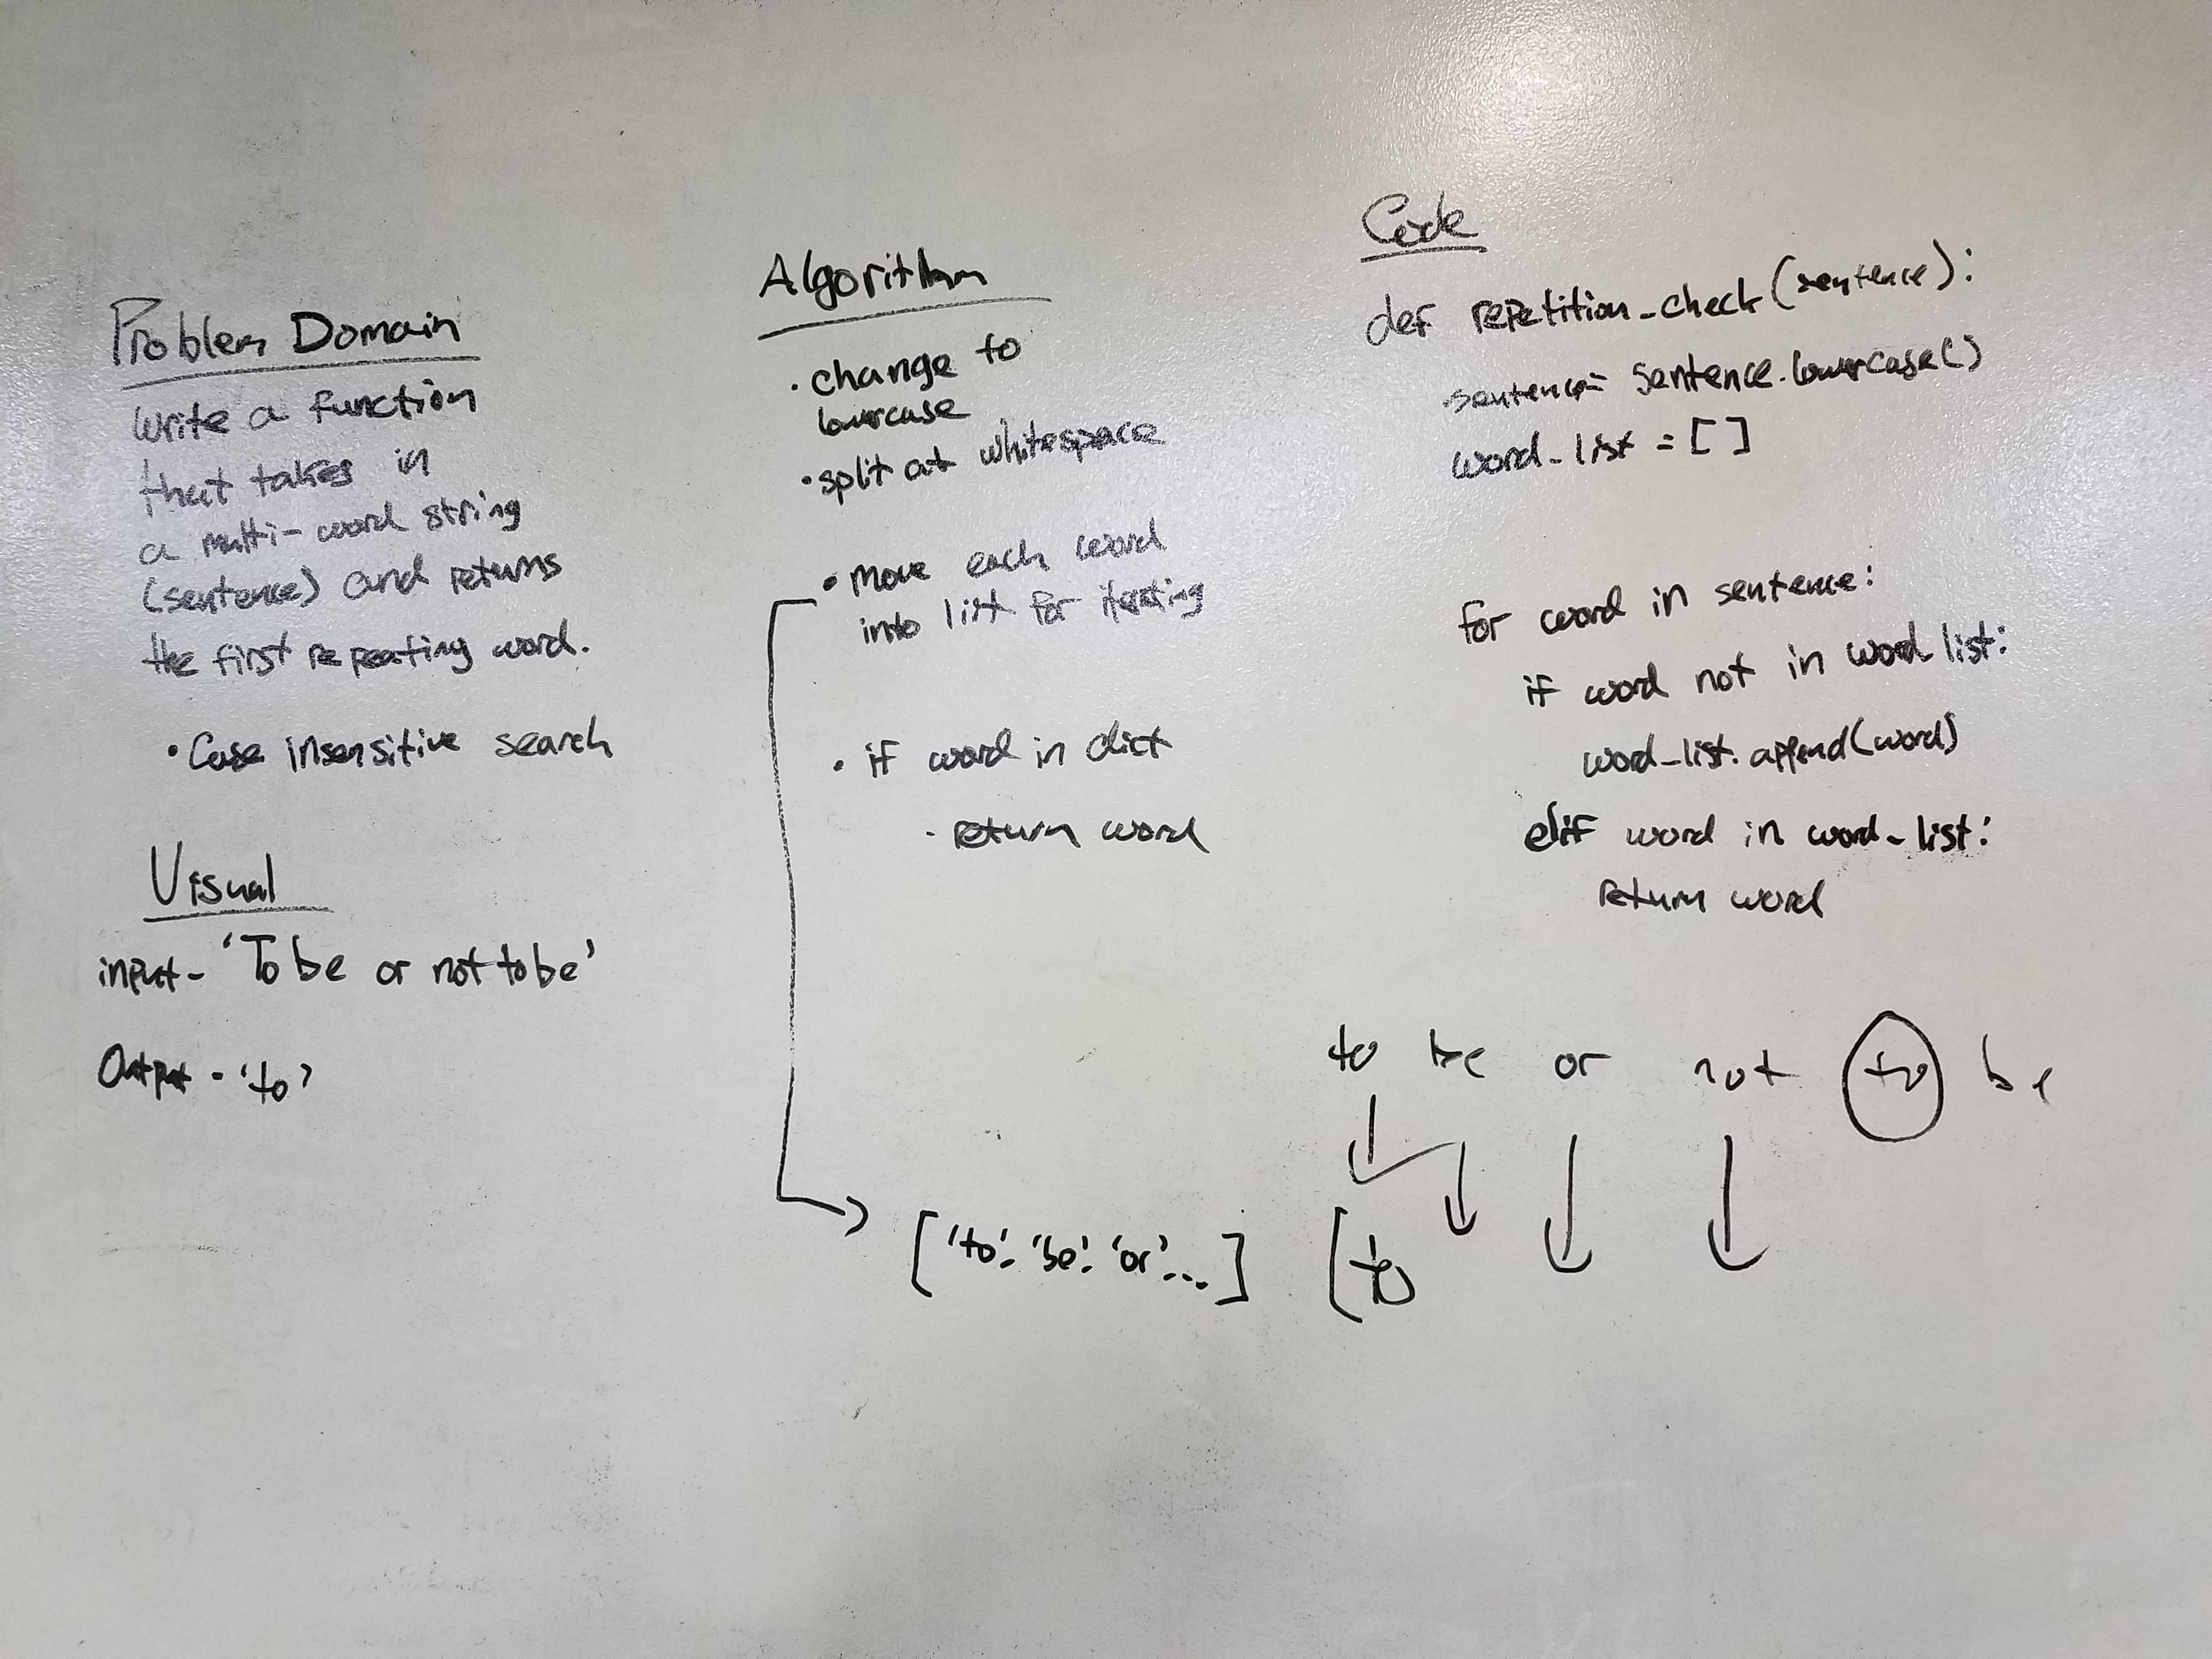 Problem Domain
Write a function
that takes in
a multi-word string
(sentence) and returns
the first repeating word.
• Case insensitive search
Visual
input - 'To be or not to be'
Output - 'to'
Algorithm
• change to
lowercase
• split at whitespace
• move each word
into list for iterating
• if word in dict
- return word
['to', 'be', 'or'...]
Code
def repetition_check(sentence):
sentence = sentence.lowercase()
word_list = []
for word in sentence:
if word not in word_list:
word_list.append(word)
elif word in word_list:
return word
to be or not to be
[to